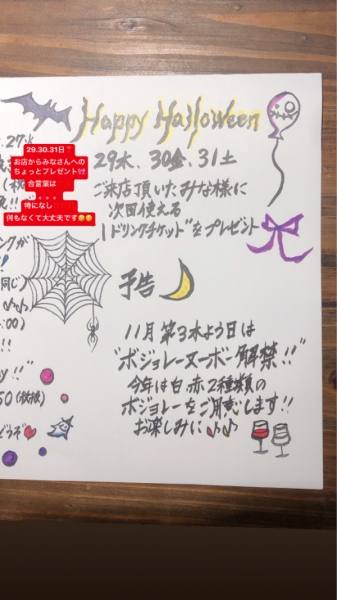 Happy Halloween
27水
29.30.31日
お店からみなさんへの
ちょっとプレゼント🎁
合言葉は
。。。。
特になし
何もなくて大丈夫です😆😆
29水. 30金. 31土
ご来店頂いたみな様に
次回使える
1ドリンクチケット"をプレゼント
ングが
同じ)
:00)
!!
50(税抜)
どうぞ
予告
11月第3木よう日は
"ボジョレーヌーボー解禁!!"
今年は白.赤2種類の
ボジョレーをご用意します!!
お楽しみに♪♪